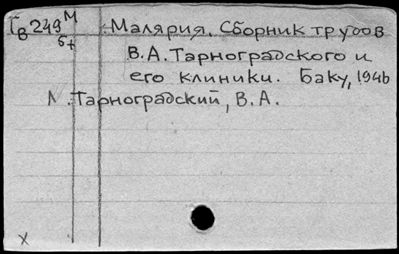 Тв 249 М Малярия. Сборник трудов
5т В.А. Тарноградского и
его клиники. Баку, 1946
М. Тарноградский, В.А.
х